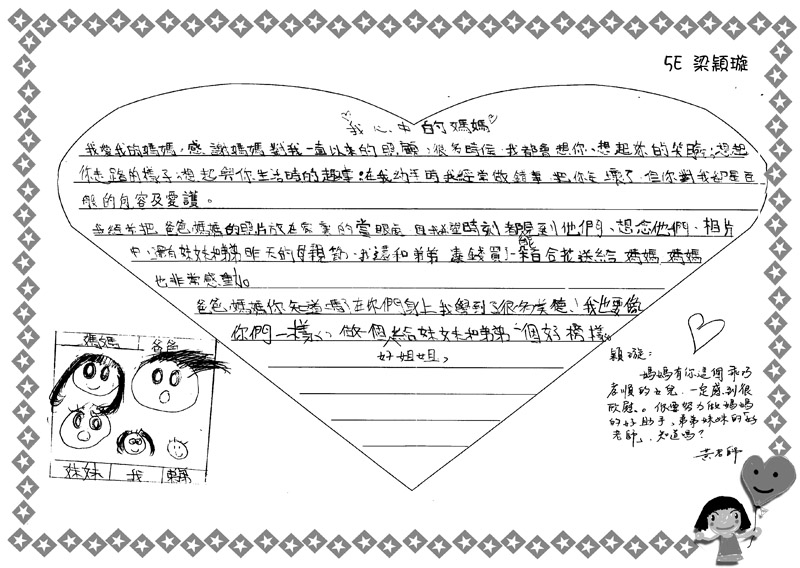 5E 梁穎璇
我心中的媽媽
我愛我的媽媽,感謝媽媽對我一直以來的照顧,很多時候,我都會想你、想起妳的笑臉;想起
你走路的樣子;想起與你生活時的趣事。在我幼年時我經常做錯事,把你氣壞了,但你對我都是百
般的包容及愛護。
我經常把爸爸媽媽的照片放在家裏的當眼處,因我希望時刻都能看到他們、想念他們、相片
中還有妹妹和弟弟。昨天的母親節,我還和弟弟一齊錢買了一朵百合花送給媽媽,媽媽
也非常感動。
爸爸媽媽你知道嗎?在你們身上我學到了很多美德!我也要像
你們一樣,做個好姐姐,給妹妹和弟弟一個好榜樣。
媽媽 爸爸
妹妹 我 弟弟
穎璇:
媽媽有你這個乖巧
孝順的女兒,一定感到很
欣慰。你要努力做媽媽
的好助手,弟弟妹妹的「好
老師」,知道嗎?
黃老師